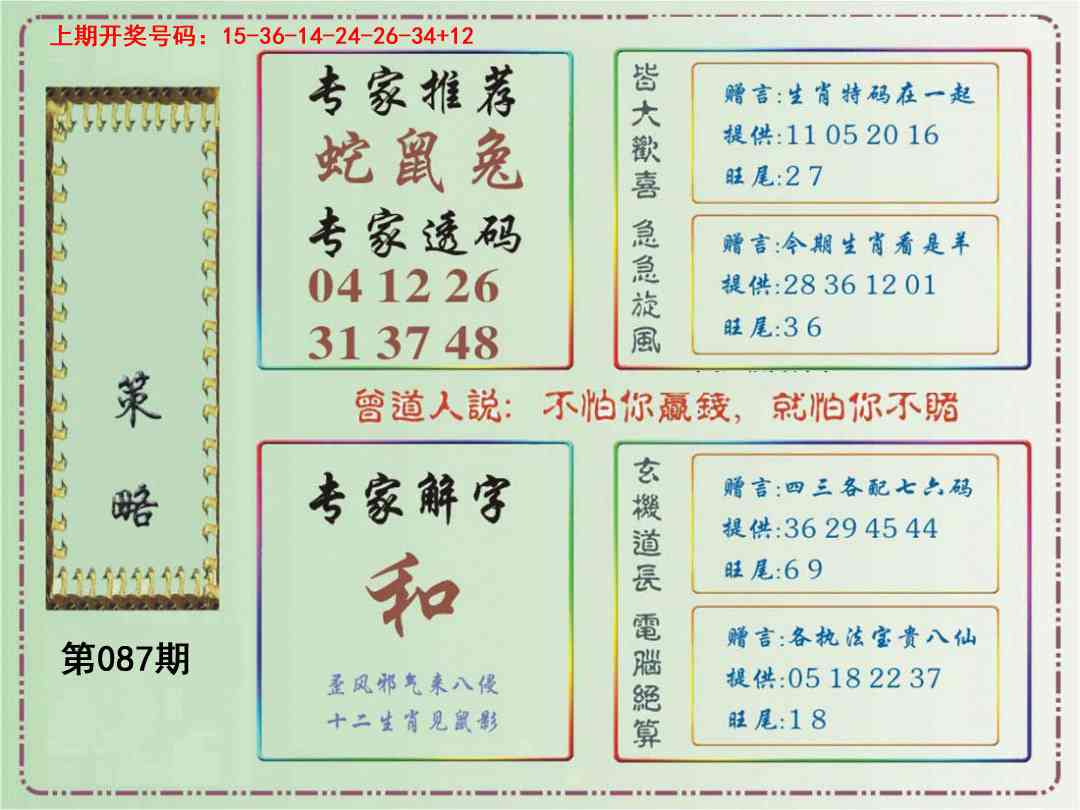 上期开奖号码：15-36-14-24-26-34+12
策略
第087期
专家推荐
蛇鼠兔
专家透码
04 12 26
31 37 48
皆大歡喜
赠言:生肖特码在一起
提供:11 05 20 16
旺尾:2 7
急急旋风
赠言:今期生肖看是羊
提供:28 36 12 01
旺尾:3 6
曾道人説：不怕你贏錢，就怕你不賭
专家解字
和
歪风邪气来八侵
十二生肖见鼠影
玄機道長
赠言:四三各配七六码
提供:36 29 45 44
旺尾:6 9
電腦絕算
赠言:各执法宝贵八仙
提供:05 18 22 37
旺尾:1 8